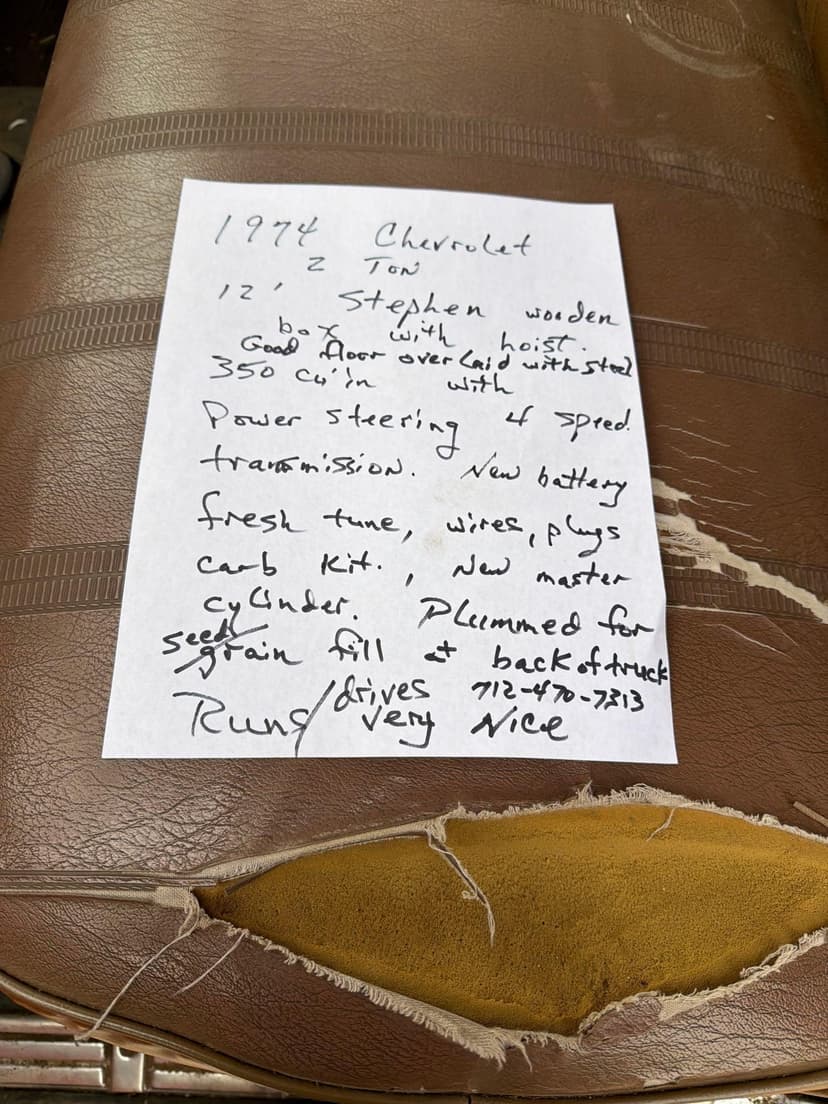 1974 Chevrolet
2 Ton
12' Stephen wooden
box with hoist.
Good floor overlaid with steel
350 Cu'in with
Power steering 4 speed
transmission. New battery
fresh tune, wires, plugs
carb kit., New master
cylinder. Plummed for
seed/grain fill at back of truck
Runs/drives 712-470-7313
very Nice